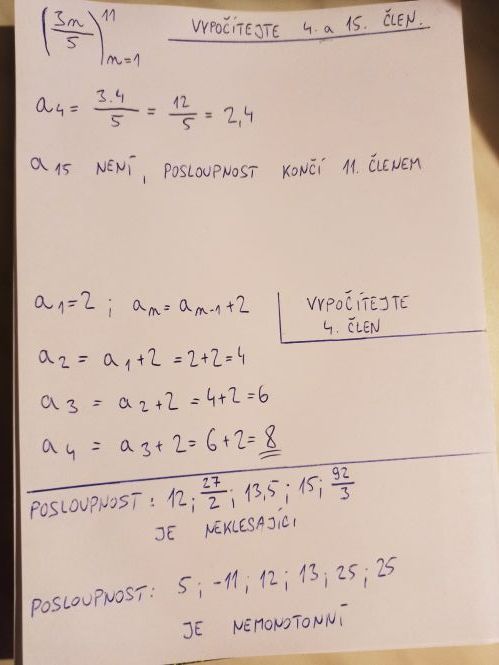 (3n/5)¹¹ₙ₌₁ VYPOČÍTEJTE 4. a 15. ČLEN.
a₄ = 3.4/5 = 12/5 = 2,4
a₁₅ NENÍ, POSLOUPNOST KONČÍ 11. ČLENEM
a₁=2 ; aₙ= aₙ₋₁+2 VYPOČÍTEJTE
4. ČLEN
a₂ = a₁+2 = 2+2=4
a₃ = a₂+2 = 4+2=6
a₄ = a₃+2 = 6+2= 8
POSLOUPNOST : 12 ; 27/2 ; 13,5 ; 15 ; 92/3
JE NEKLESAJÍCÍ
POSLOUPNOST: 5 ; -11 ; 12 ; 13 ; 25 ; 25
JE NEMONOTONNÍ